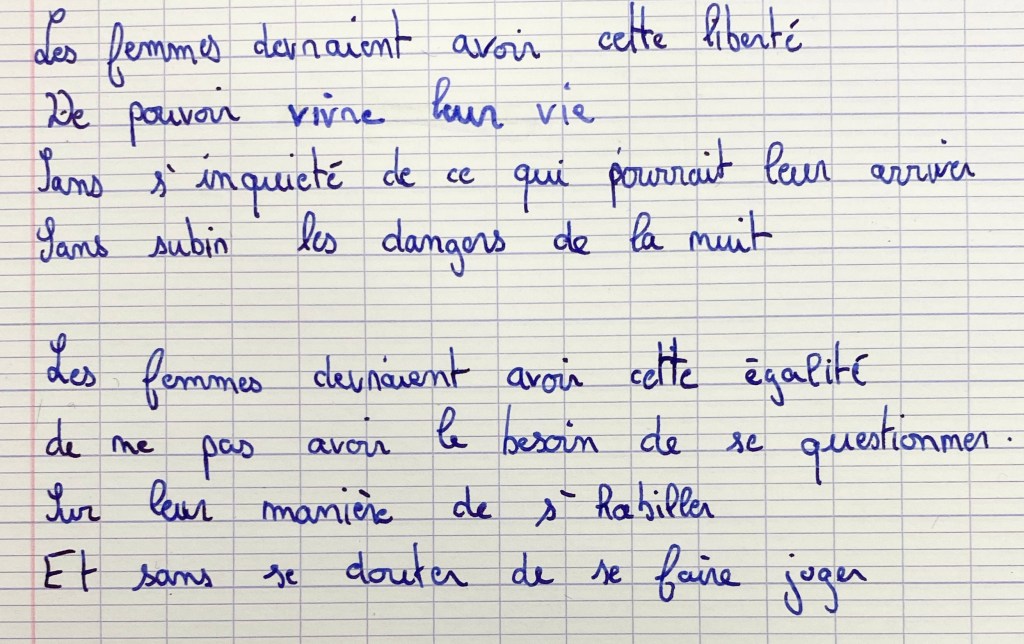 Les femmes devraient avoir cette liberté
De pouvoir vivre leur vie
Sans s'inquieté de ce qui pourrait leur arriver
Sans subir les dangers de la nuit
Les femmes devraient avoir cette égalité
de ne pas avoir le besoin de se questionner.
Sur leur manière de s'habiller
Et sans se douter de se faire juger